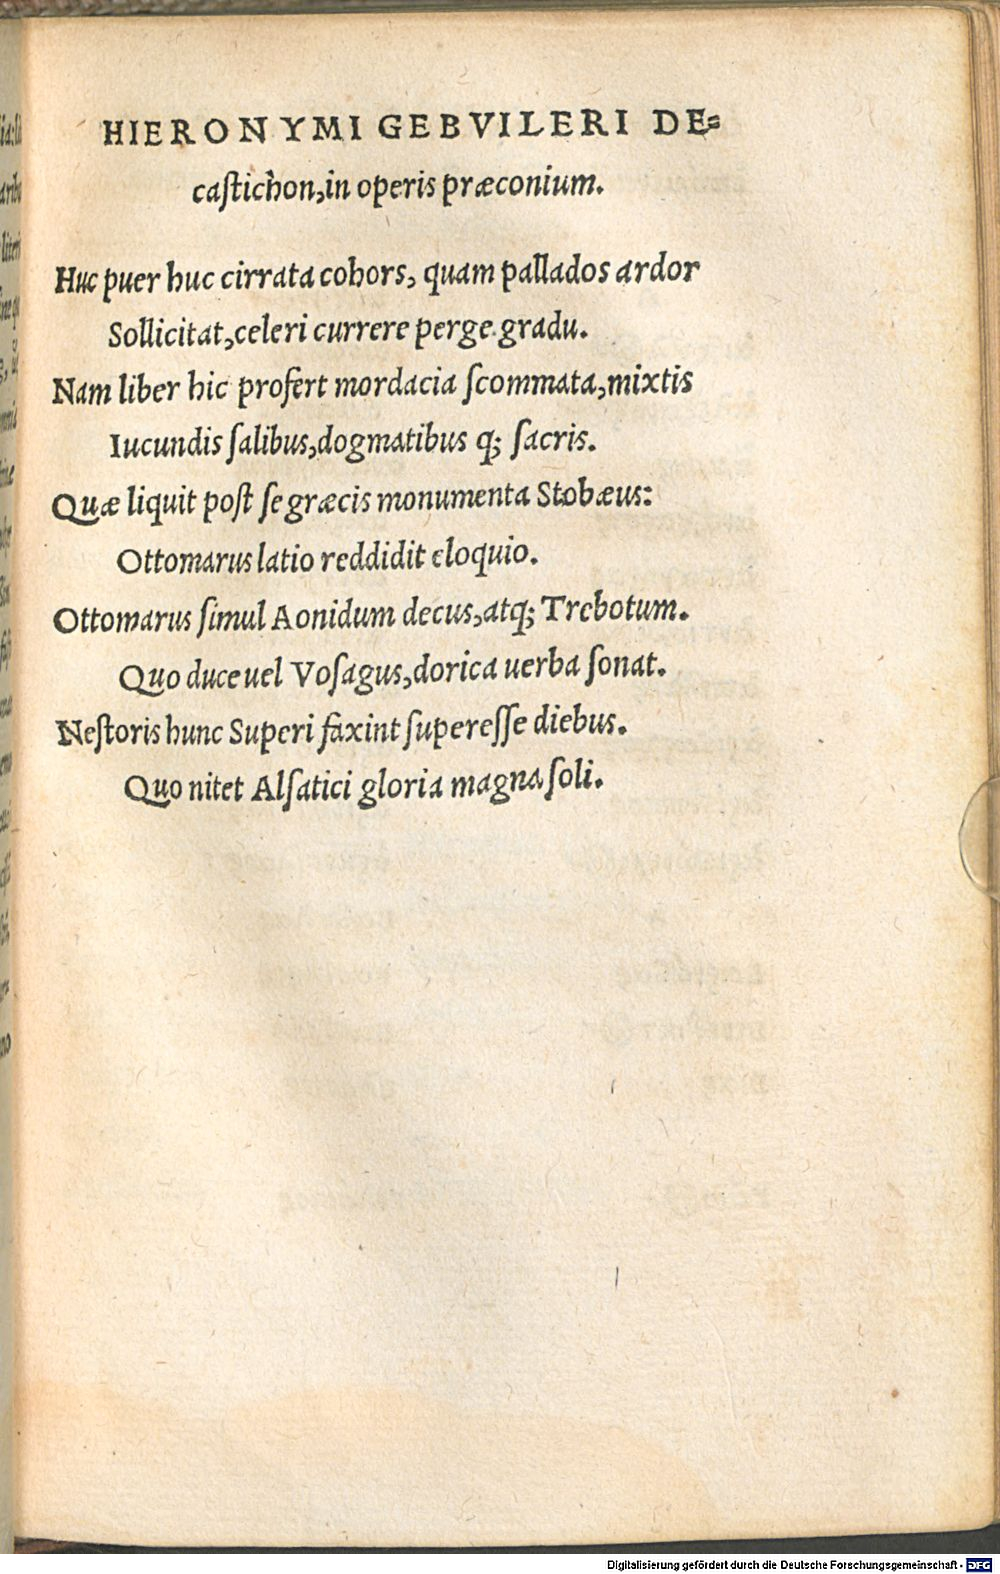 HIERONYMI GEBVILERI DE=
castichon, in operis præconium.
Huc puer huc cirrata cohors, quam pallados ardor
Sollicitat, celeri currere perge gradu.
Nam liber hic profert mordacia scommata, mixtis
Iucundis salibus, dogmatibus q; sacris.
Quæ liquit post se græcis monumenta Stobæus:
Ottomarus latio reddidit eloquio.
Ottomarus simul Aonidum decus, atq; Trebotum.
Quo duce uel Vosagus, dorica uerba sonat.
Nestoris hunc Superi faxint superesse diebus.
Quo nitet Alsatici gloria magna soli.
Digitalisierung gefördert durch die Deutsche Forschungsgemeinschaft - DFG